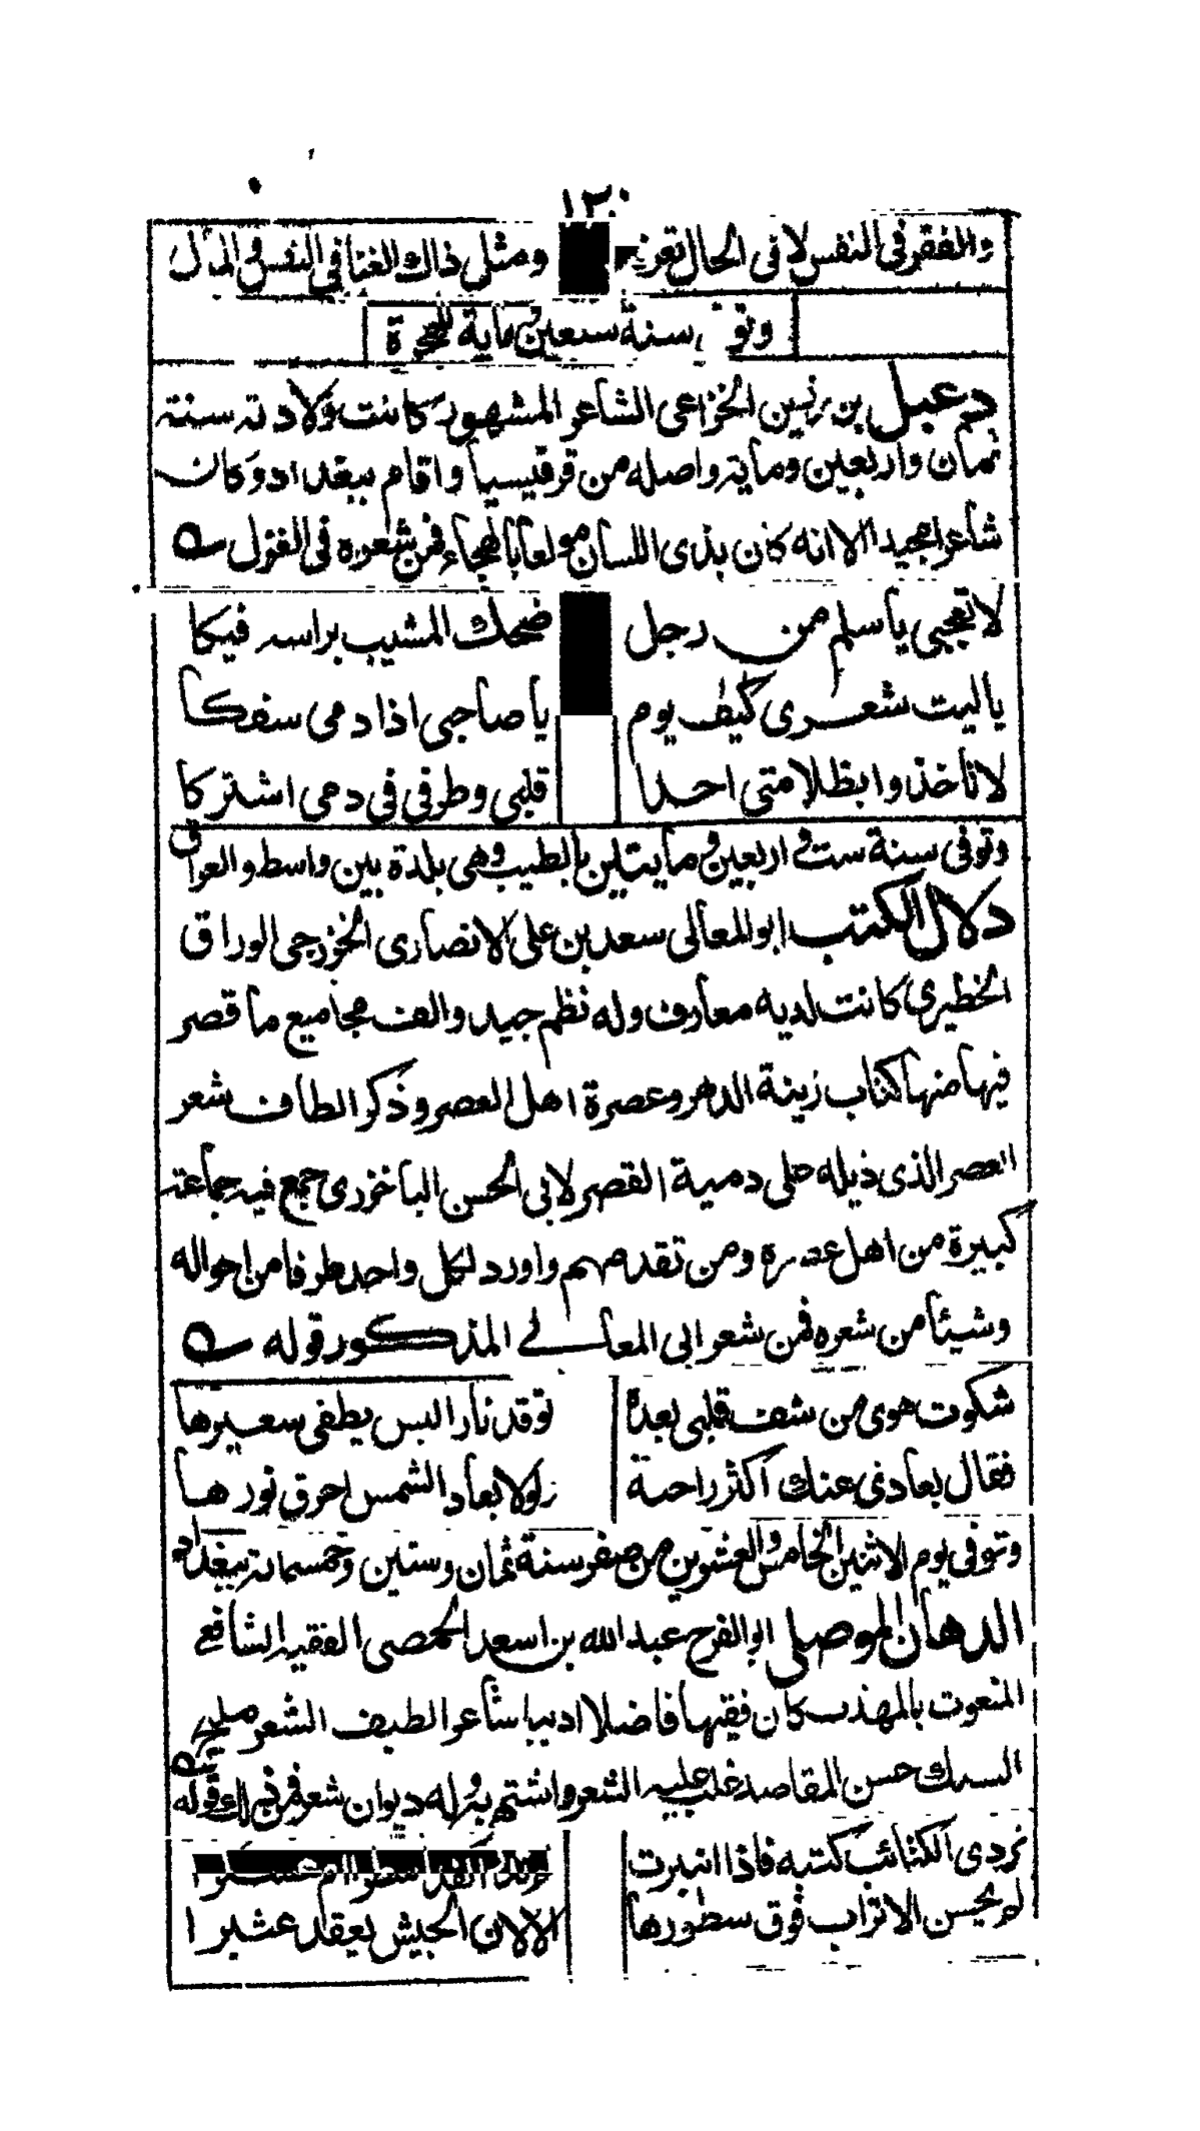 ١٣٠
والفقر في النفس لا في الحال تعرفه ومثل ذاك الغنا في النفس لا المال
وتوفي سنة سبعين وماية للهجرة
دعبل بن رزين الخزاعى الشاعر المشهور كانت ولادته سنة
ثمان واربعين وماية واصله من قرقيسيا واقام ببغداد وكان
شاعرا مجيدا الا انه كان بذى اللسان مولعا بالهجاء فمن شعره فى الغزل
لا تعجبى يا سلم من رجل ضحك المشيب براسه فبكا
يا ليت شعرى كيف يوم يا صاحبى اذا دمى سفكا
لا تاخذوا بظلامتى احدا قلبى وطرفى فى دمى اشتركا
وتوفى سنة ست واربعين ومايتين بالطيب وهى بلدة بين واسط والعراق
دلال الكتب ابو المعالى سعد بن على الانصارى الخزرجى الوراق
الخطيرى كانت لديه معارف وله نظم جيد والف مجاميع ما قصر
فيها منها كتاب زينة الدهر وعصرة اهل العصر وذكر الطاف شعر
العصر الذى ذيله على دمية القصر لابى الحسن الباخرزى جمع فيه جماعة
كبيرة من اهل عصره ومن تقدمهم واورد لكل واحد طرفا من احواله
وشيئا من شعره فمن شعر ابى المعالى المذكور قوله
شكوت هوى من شف قلبى بعده توقد نار ليس يطفى سعيرها
فقال بعادى عنك اكثر راحة ولولا بعاد الشمس احرق نورها
وتوفى يوم الاثنين الخامس والعشرين من صفر سنة ثمان وستين وخمسماية ببغداد
الدهان الموصلى ابو الفرج عبد الله بن اسعد الحمصى الفقيه الشافعى
المنعوت بالمهذب كان فقيها فاضلا اديبا شاعرا لطيف الشعر مليح
السبك حسن المقاصد غلب عليه الشعر واشتهر به وله ديوان شعر فمن ذلك قوله
تردى الكتائب كتبه فاذا انبرت
لم يحسن الاتراب فوق سطورها الا لان الجيش يعقد عثيرا